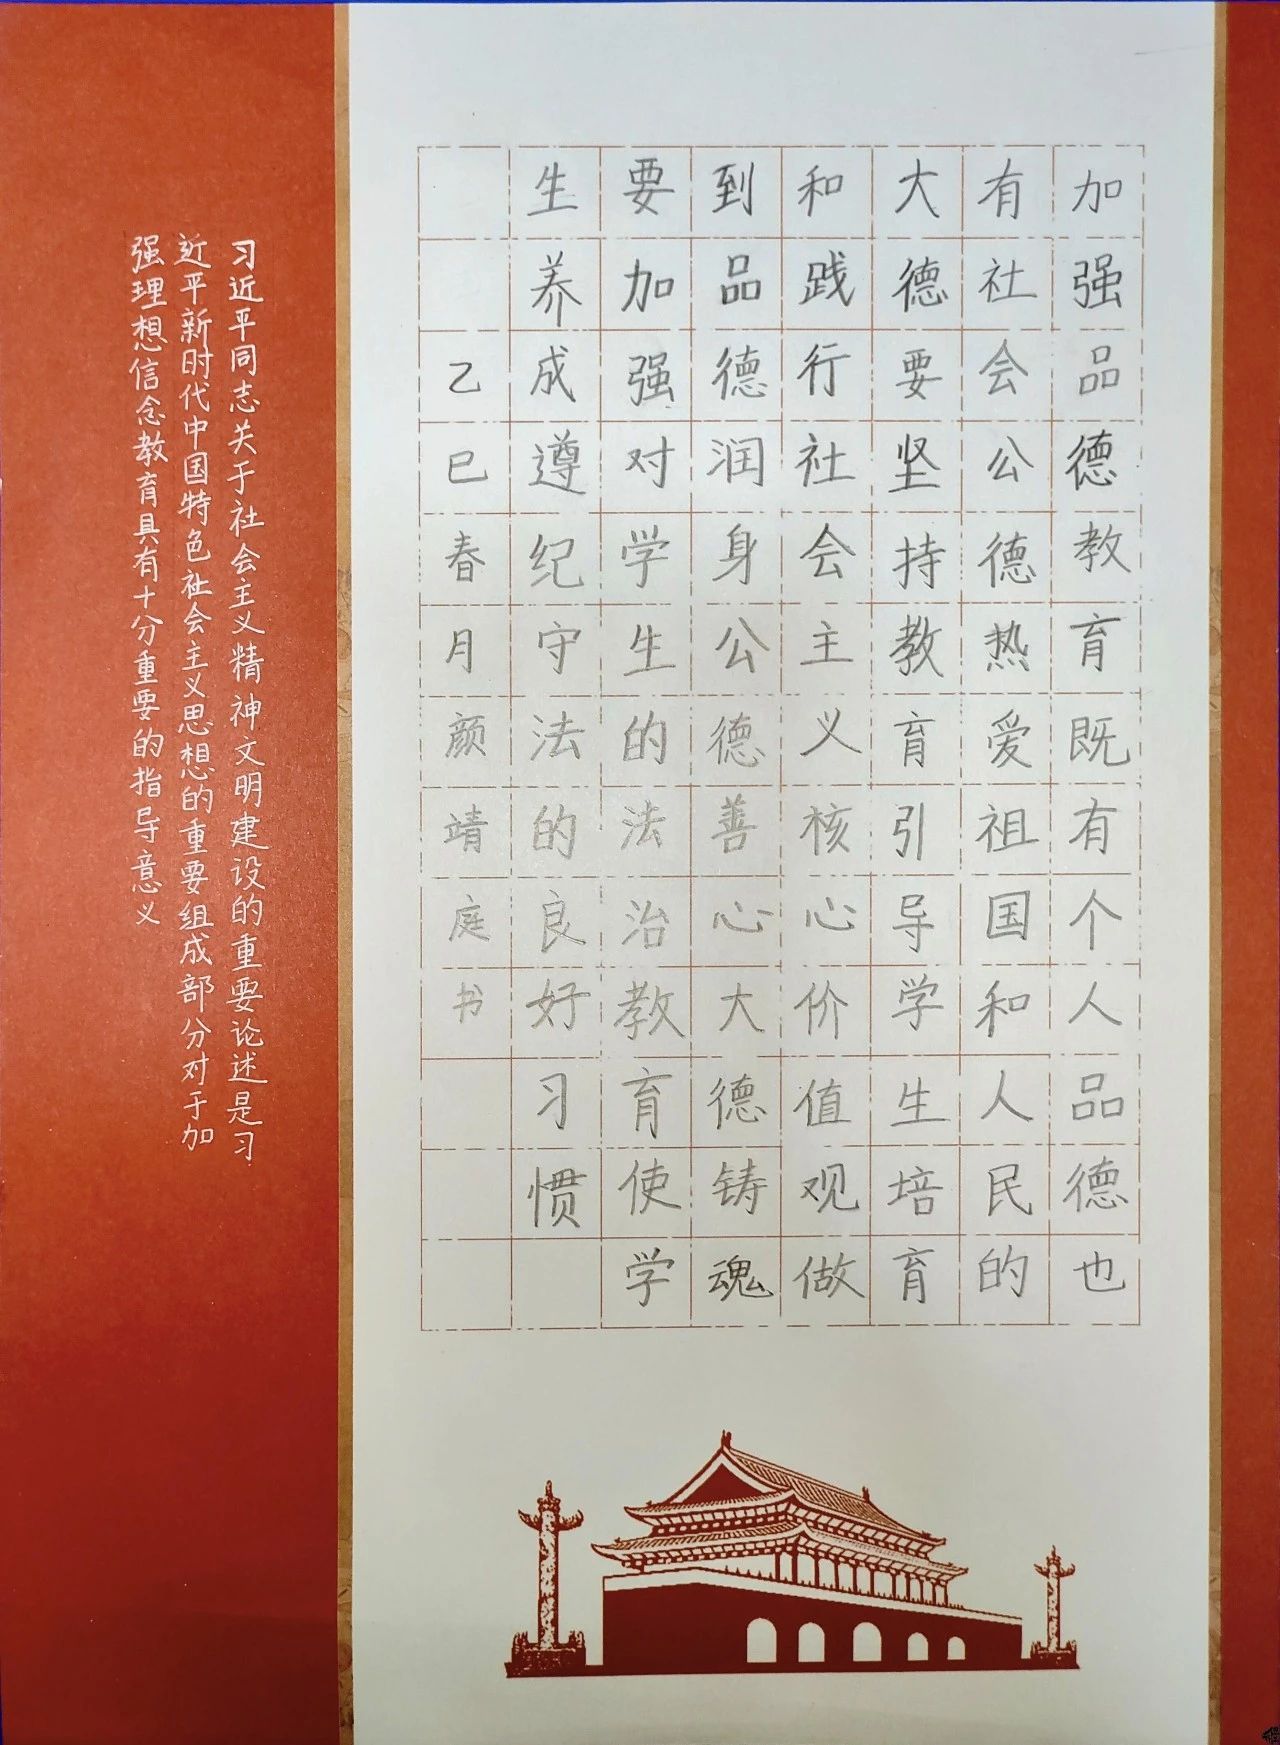 加强品德教育既有个人品德也
有社会公德热爱祖国和人民的
大德要坚持教育引导学生培育
和践行社会主义核心价值观做
到品德润身公德善心大德铸魂
要加强对学生的法治教育使学
生养成遵纪守法的良好习惯
乙巳春月颜靖庭书
习近平同志关于社会主义精神文明建设的重要论述是习
近平新时代中国特色社会主义思想的重要组成部分对于加
强理想信念教育具有十分重要的指导意义